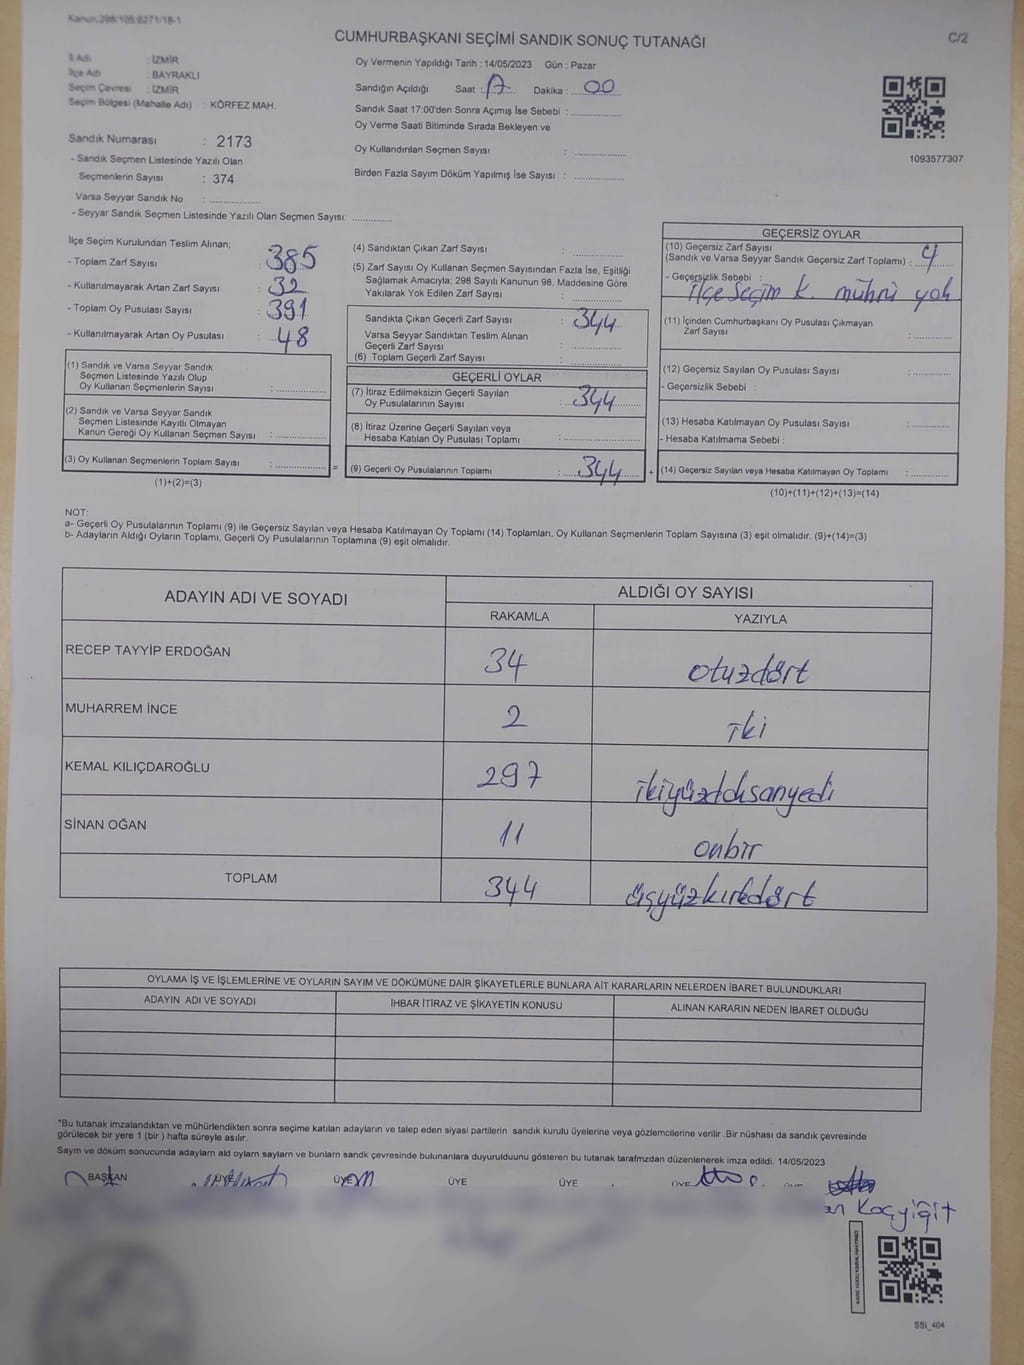 Kanun:298/105:6271/18-1
C/2
CUMHURBAŞKANI SEÇİMİ SANDIK SONUÇ TUTANAĞI
İl Adı : İZMİR
İlçe Adı : BAYRAKLI
Seçim Çevresi : İZMİR
Seçim Bölgesi (Mahalle Adı) : KÖRFEZ MAH.
Oy Vermenin Yapıldığı Tarih : 14/05/2023 Gün : Pazar
Sandığın Açıldığı Saat : 17 Dakika : 00
Sandık Saat 17:00'den Sonra Açımış İse Sebebi :
Oy Verme Saati Bitiminde Sırada Bekleyen ve
Oy Kullandırılan Seçmen Sayısı :
Birden Fazla Sayım Döküm Yapılmış İse Sayısı :
1093577307
Sandık Numarası : 2173
- Sandık Seçmen Listesinde Yazılı Olan
Seçmenlerin Sayısı : 374
Varsa Seyyar Sandık No :
- Seyyar Sandık Seçmen Listesinde Yazılı Olan Seçmen Sayısı:
İlçe Seçim Kurulundan Teslim Alınan;
- Toplam Zarf Sayısı : 385
- Kullanılmayarak Artan Zarf Sayısı : 32
- Toplam Oy Pusulası Sayısı : 391
- Kullanılmayarak Artan Oy Pusulası : 48
(1) Sandık ve Varsa Seyyar Sandık
Seçmen Listesinde Yazılı Olup
Oy Kullanan Seçmenlerin Sayısı :
(2) Sandık ve Varsa Seyyar Sandık
Seçmen Listesinde Kayıtlı Olmayan
Kanun Gereği Oy Kullanan Seçmen Sayısı :
(3) Oy Kullanan Seçmenlerin Toplam Sayısı : =
(1)+(2)=(3)
(4) Sandıktan Çıkan Zarf Sayısı :
(5) Zarf Sayısı Oy Kullanan Seçmen Sayısından Fazla İse, Eşitliği
Sağlamak Amacıyla; 298 Sayılı Kanunun 98. Maddesine Göre
Yakılarak Yok Edilen Zarf Sayısı :
Sandıkta Çıkan Geçerli Zarf Sayısı : 344
Varsa Seyyar Sandıktan Teslim Alınan
Geçerli Zarf Sayısı :
(6) Toplam Geçerli Zarf Sayısı :
GEÇERLİ OYLAR
(7) İtiraz Edilmeksizin Geçerli Sayılan
Oy Pusulalarının Sayısı : 344
(8) İtiraz Üzerine Geçerli Sayılan veya
Hesaba Katılan Oy Pusulası Toplamı :
(9) Geçerli Oy Pusulalarının Toplamı : 344 +
GEÇERSİZ OYLAR
(10) Geçersiz Zarf Sayısı
(Sandık ve Varsa Seyyar Sandık Geçersiz Zarf Toplamı) : 4
- Geçersizlik Sebebi :
İlçe seçim k. mührü yok
(11) İçinden Cumhurbaşkanı Oy Pusulası Çıkmayan
Zarf Sayısı :
(12) Geçersiz Sayılan Oy Pusulası Sayısı :
- Geçersizlik Sebebi :
(13) Hesaba Katılmayan Oy Pusulası Sayısı :
- Hesaba Katılmama Sebebi :
(14) Geçersiz Sayılan veya Hesaba Katılmayan Oy Toplamı :
(10)+(11)+(12)+(13)=(14)
NOT:
a- Geçerli Oy Pusulalarının Toplamı (9) ile Geçersiz Sayılan veya Hesaba Katılmayan Oy Toplamı (14) Toplamları, Oy Kullanan Seçmenlerin Toplam Sayısına (3) eşit olmalıdır. (9)+(14)=(3)
b- Adayların Aldığı Oyların Toplamı, Geçerli Oy Pusulalarının Toplamına (9) eşit olmalıdır.
ADAYIN ADI VE SOYADI
ALDIĞI OY SAYISI
RAKAMLA YAZIYLA
RECEP TAYYİP ERDOĞAN 34 otuzdört
MUHARREM İNCE 2 iki
KEMAL KILIÇDAROĞLU 297 ikiyüzdoksanyedi
SİNAN OĞAN 11 onbir
TOPLAM 344 üçyüzkırkdört
OYLAMA İŞ VE İŞLEMLERİNE VE OYLARIN SAYIM VE DÖKÜMÜNE DAİR ŞİKAYETLERLE BUNLARA AİT KARARLARIN NELERDEN İBARET BULUNDUKLARI
ADAYIN ADI VE SOYADI İHBAR İTİRAZ VE ŞİKAYETİN KONUSU ALINAN KARARIN NEDEN İBARET OLDUĞU
*Bu tutanak imzalandıktan ve mühürlendikten sonra seçime katılan adayların ve talep eden siyasi partilerin sandık kurulu üyelerine veya gözlemcilerine verilir .Bir nüshası da sandık çevresinde
görülecek bir yere 1 (bir ) hafta süreyle asılır.
Sayım ve döküm sonucunda adayların ald oyların sayların ve bunların sandk çevresinde bulunanlara duyurulduunu gösteren bu tutanak tarafmzdan düzenlenerek imza edildi. 14/05/2023
BAŞKAN ÜYE ÜYE ÜYE ÜYE
Koçyiğit
SSi_404